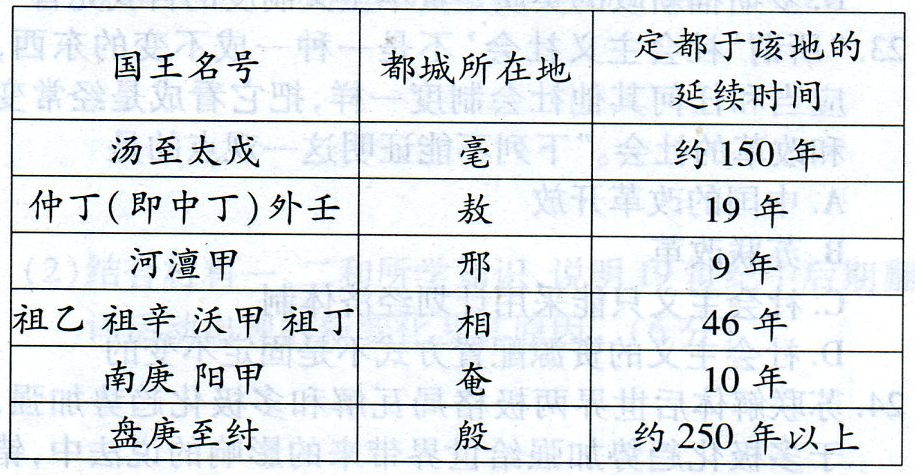 国王名号 都城所在地 定都于该地的
延续时间
汤至太戊 毫 约 150 年
仲丁(即中丁)外壬 敖 19 年
河澶甲 邢 9 年
祖乙 祖辛 沃甲 祖丁 相 46 年
南庚 阳甲 奄 10 年
盘庚至纣 殷 约 250 年以上